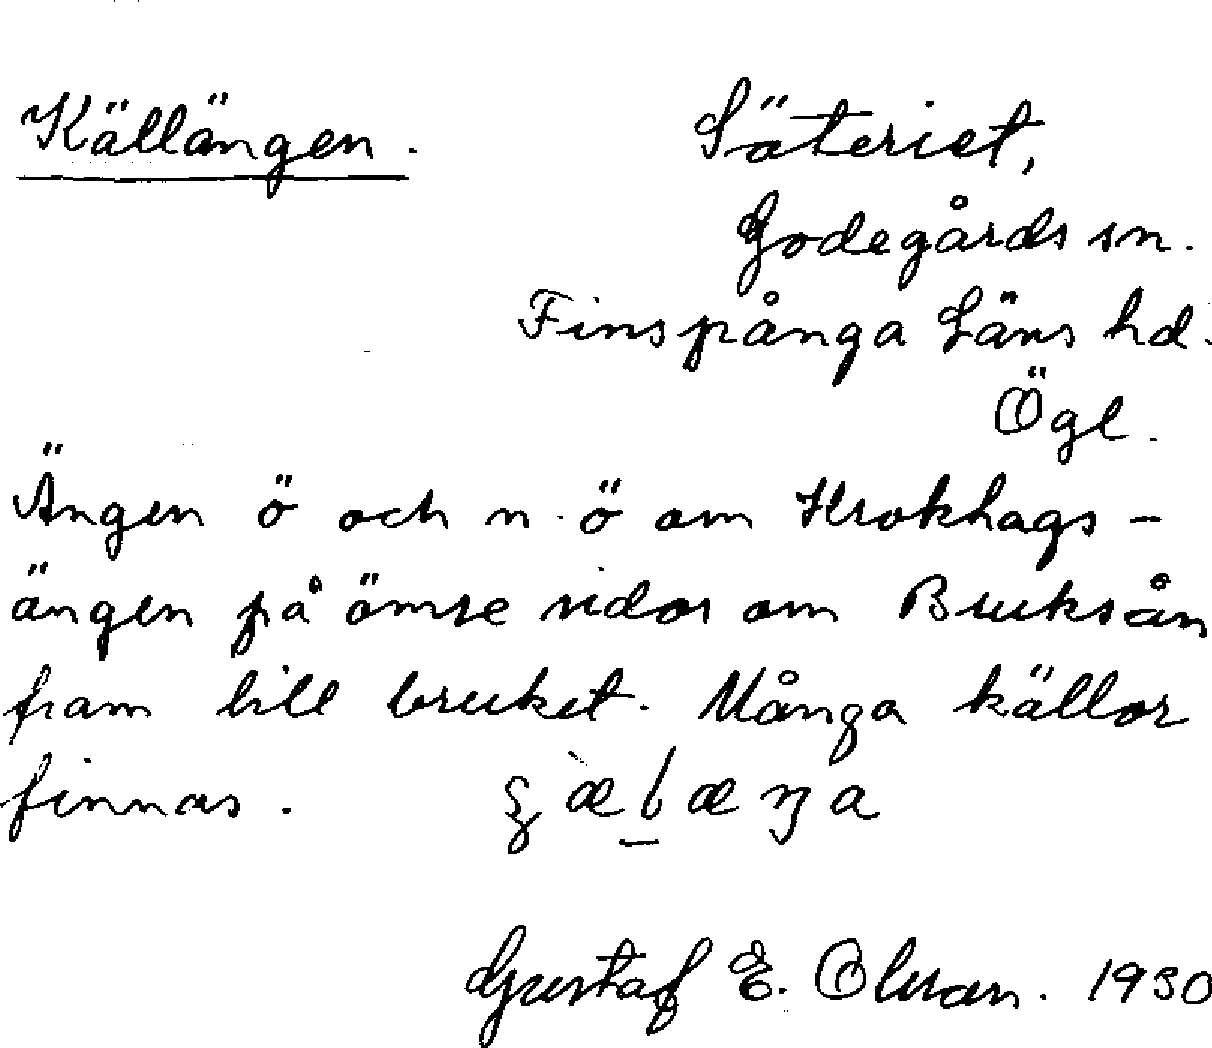 Källängen.
Säteriet,
Godegårds sn.
Finspånga Läns hd.
Ögl.
Ängen ö och n.ö om Krokhags-
ängen på ömse sidor om Bruksån
fram till bruket. Många källor
finnas.
Gustaf E. Olsson. 1930